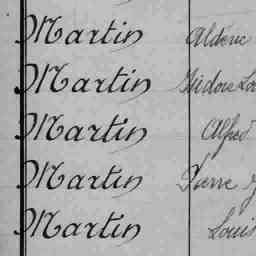 Martin Aldéric
Martin Isidore Lo
Martin Alfred
Martin Pierre J
Martin Louis